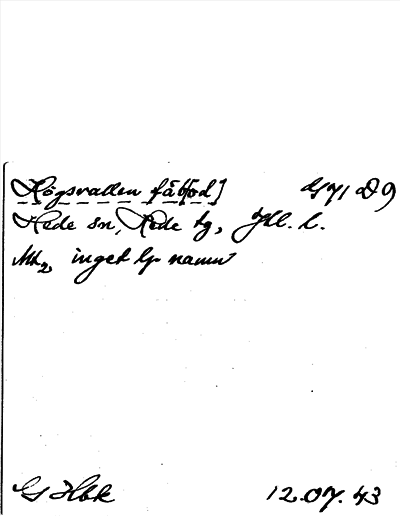 Högsvallen fäbod] 171 D 9
Hede sn, Hede tg, Jtl. l.
inget lp namn
G Hbk 12.07.43